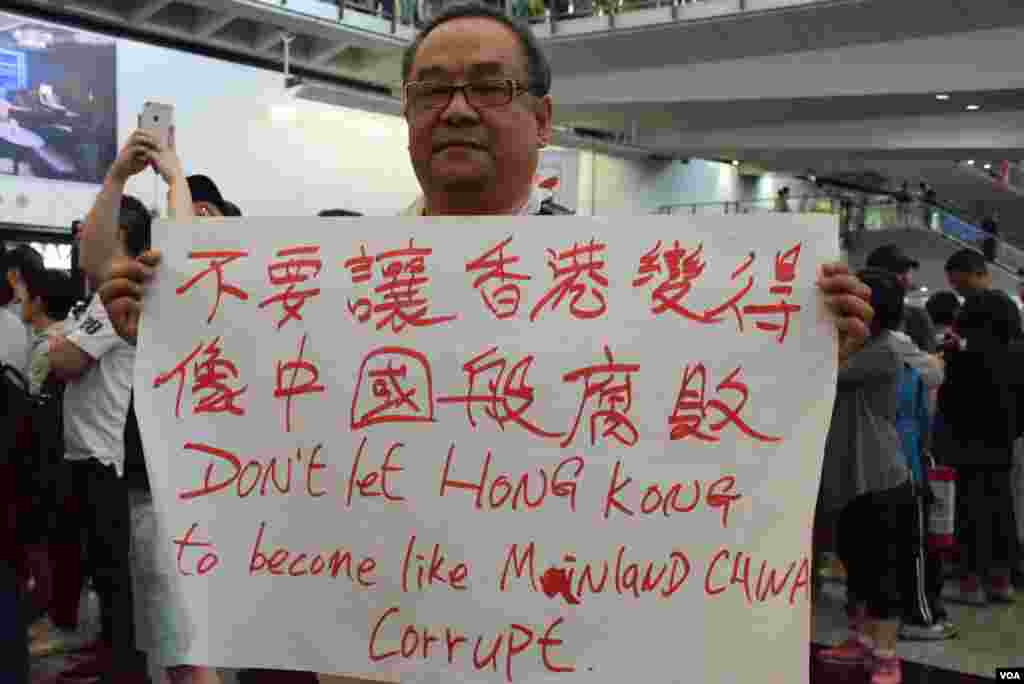 不要讓香港變得
像中國一般腐敗
DON't let HONG KONG
to become like MainlAND CHINA
Corrupt.
VOA